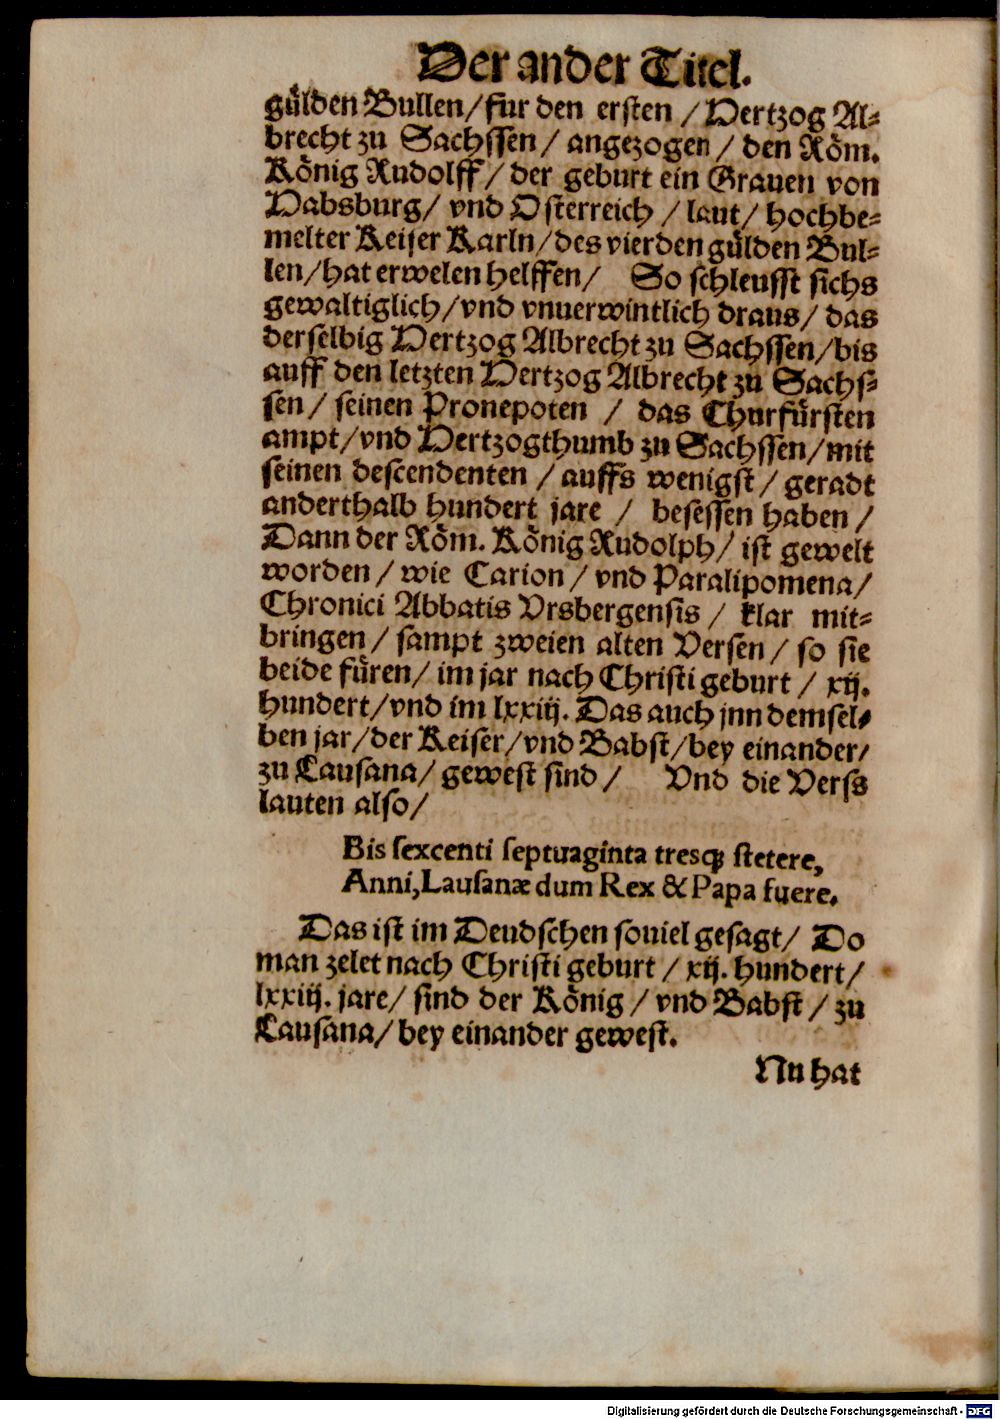 Der ander Titel.
guͤlden Bullen/ fur den ersten / Hertzog Al⸗
brecht zu Sachssen/ angezogen / den Roͤm.
Koͤnig Rudolff/ der geburt ein Grauen von
Habsburg/ vnd Osterreich / laut/ hochbe⸗
melter Keiser Karln/ des vierden guͤlden Bul⸗
len/ hat erwelen helffen/ So schleusst sichs
gewaltiglich/ vnd vnuerwintlich draus/ das
derselbig Hertzog Albrecht zu Sachssen/ bis
auff den letzten Hertzog Albrecht zu Sachs⸗
sen/ seinen Pronepoten / das Churfuͤrsten
ampt/ vnd Hertzogthumb zu Sachssen/ mit
seinen descendenten / auffs wenigst/ geradt
anderthalb hundert jare / besessen haben /
Dann der Roͤm. Koͤnig Rudolph/ ist gewelt
worden / wie Carion / vnd Paralipomena/
Chronici Abbatis Vrsbergensis / klar mit⸗
bringen / sampt zweien alten Versen / so sie
beide fuͤren/ im jar nach Christi geburt / xij.
hundert/ vnd im lxxiij. Das auch jnn demsel⸗
ben jar/ der Keiser/ vnd Babst/ bey einander/
zu Lausana/ gewest sind / Vnd die Verss
lauten also/
Bis sexcenti septuaginta tresq́; stetere,
Anni, Lausanæ dum Rex & Papa fuere.
Das ist im Deudschen souiel gesagt/ Do
man zelet nach Christi geburt / xij. hundert/
lxxiij. jare/ sind der Koͤnig / vnd Babst / zu
Lausana/ bey einander gewest.
Nu hat
Digitalisierung gefördert durch die Deutsche Forschungsgemeinschaft - DFG